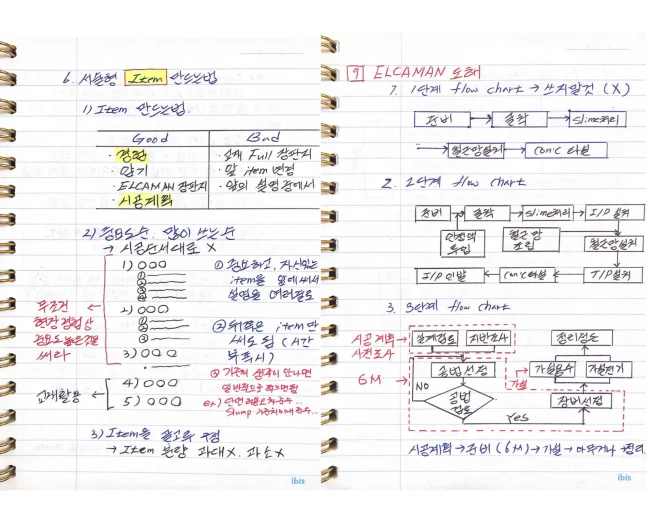 6. 서술형 Item 만드는법
1) Item 만드는법.
Good Bad
· 경험 · 교재 Full 장판지
· 암기 · 앞 item 변경
· ELCAMAN 장판지 · 앞의 설명 중에서
· 시공계획
2) 중요도순, 많이 쓰는순
→ 시공순서대로 X
1) ○○○
①
②
③
④
2) ○○○
①
②
③
3) ○○○
4) ○○○
5) ○○○
무조건
현장경험상
중요도 높은것은
써라
교재활용
① 중요하고, 자신있는
item을 앞에 써서
설명을 여러줄로
② 뒤쪽은 item만
써도 됨 (시간
부족시)
ex)
3) Item을 골고루 추정
→ Item 분량 과대X. 과소X
ibis
9 ELCAMAN 도해
1. 1단계 flow chart → 쓰지말것 (X)
준비 → 굴착 → slime처리
→ 철근망설치 → Conc 타설
2. 2단계 flow chart
준비 → 굴착 → slime처리 → I/P 설치
안정액 투입 철근망 조립 철근망설치
I/P 인발 ← Conc타설 ← T/P설치
3. 3단계 flow chart
시공계획
사전조사
6M
설계검토 지반조사
공법선정
NO
공법 검토
YES
정리정돈
가설용수 가설전기
가설
장비선정
시공계획 → 준비 (6M) → 가설 → 아무거나 → 정리.
ibis